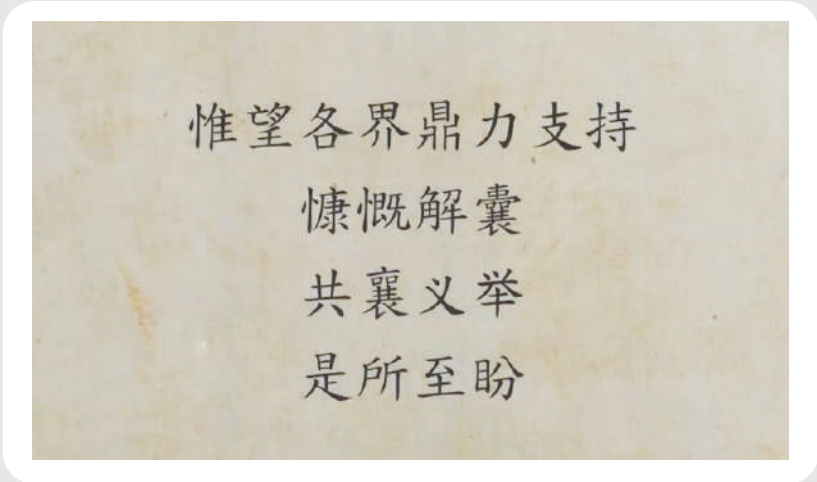 惟望各界鼎力支持
慷慨解囊
共襄义举
是所至盼